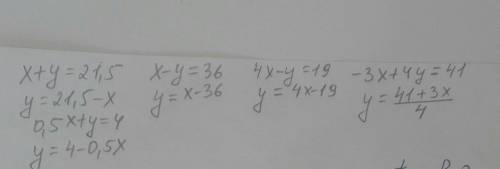 x+y=21,5 x-y=36 4x-y=19 -3x+4y=41
y=21,5-x y=x-36 y=4x-19 y=\frac{41+3x}{4}
0,5x+y=4
y=4-0,5x